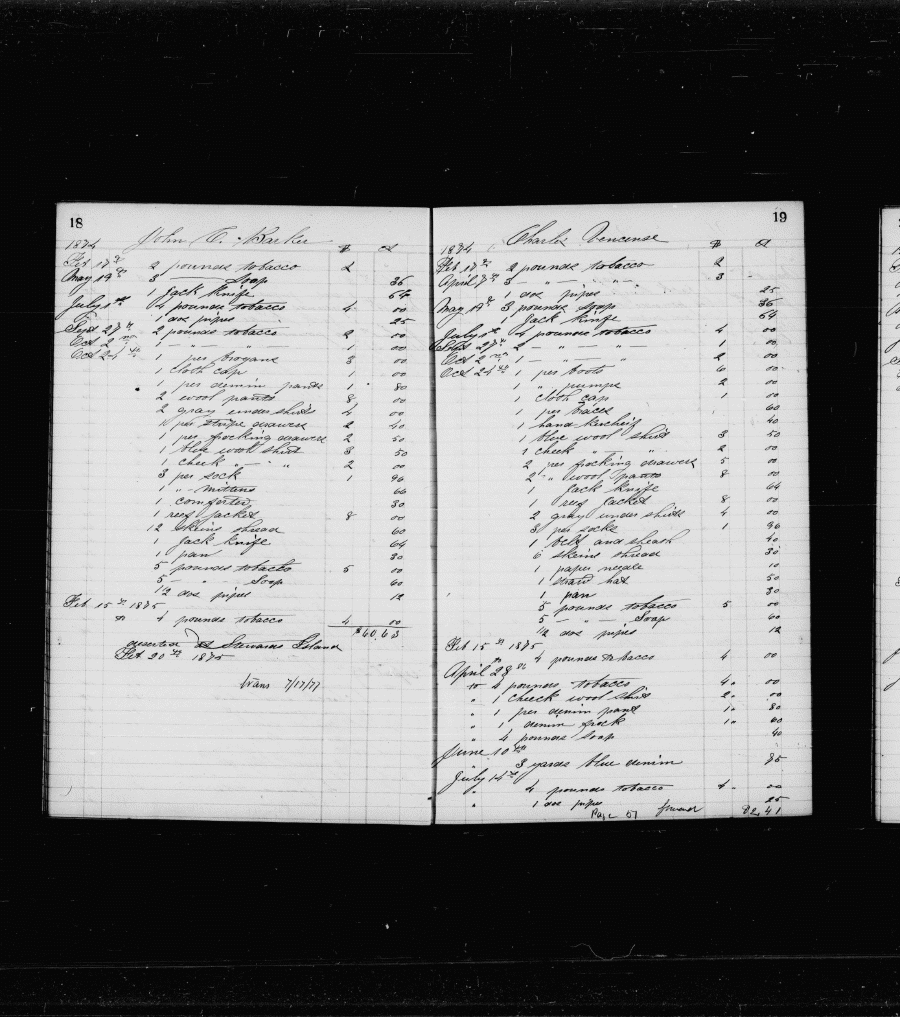 18
John C. Barker
1874 $ ct
Feb 17th 2 pounds tobacco 2
May 19th 3 " Soap 36
1 Jack Knife 64
July 1st 4 pounds tobacco 4 00
1 doz pipes 25
Sept 27th 2 pounds tobacco 2 00
Oct 2nd 1 — " — " — 1 00
Oct 24th 1 per brogans 3 00
1 cloth cap 1 00
1 per denim pants 1 80
2 wool pants 8 00
2 gray under shirts 4 00
1 per stripe drawers 2 40
1 per frocking drawers 2 50
1 blue wool shirt 3 50
1 check " — " " 2 00
3 per sock 1 96
1 " — mittens 66
1 comforter 80
1 reef jacket 8 00
12 skeins thread 60
1 Jack knife 64
1 pan 30
5 pounds tobacco 5 00
5 — " — Soap 60
1/2 doz pipes 12
Feb 15th 1875
4 pounds tobacco 4 00
$60,63
deserted at Stewards Island
Feb 20th 1875
trans 7/17/77
19
Charles Vencense
1874 $ ct
Feb 17th 2 pounds tobacco 2
April 7th 3 — " — " — " 3
1 doz pipes 25
May 19th 3 pounds soap 36
1 Jack knife 64
July 1st 4 pounds tobacco 4 00
Sept 27th 2 " — " — 1 00
Oct 2nd 1 — " — " 2 00
Oct 24th 1 per boots 6 00
1 " pumps 2 00
1 cloth cap 1 00
1 per braces 60
1 hand kercheif 40
1 blue wool shirt 3 50
1 check " " 2 00
2 per frocking drawers 5 00
2 " wool pants 8 00
1 Jack knife 64
1 reef jacket 8 00
2 gray under shirts 4 00
3 per socks 1 96
1 belt and sheath 40
6 skeins thread 30
1 paper needle 10
1 straw hat 50
1 pan 30
5 pounds tobacco 5 00
5 — " — Soap 60
1/2 doz pipes 12
Feb 15th 1875
4 pounds tobacco 4 00
April 28th
4 pounds tobacco 4 00
" 1 check wool shirt 2 00
" 1 per denim pants 1 80
" 1 denim frock 1 60
" 4 pounds soap 40
June 10th
3 yards blue denim 85
July 14th
4 pounds tobacco 4 00
" 1 doz pipes 25
Page 57 forward 82,41